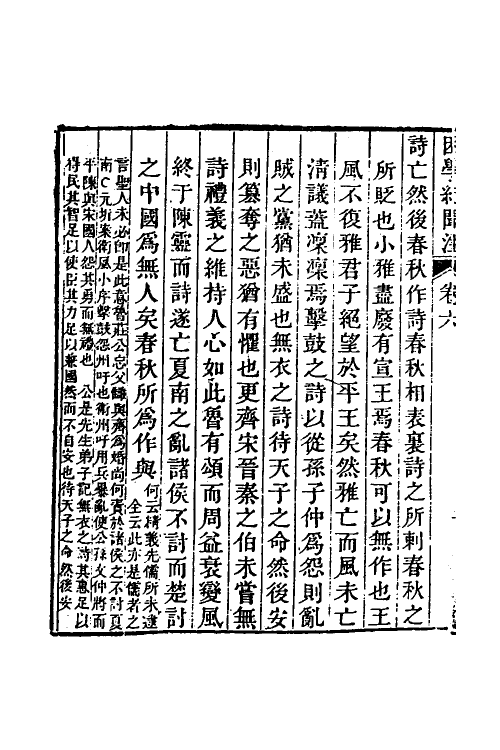 困學紀聞注 卷六
詩亡然後春秋作詩春秋相表裏詩之所刺春秋之
所貶也小雅盡廢有宣王焉春秋可以無作也王
風不復雅君子絕望於平王矣然雅亡而風未亡
清議蓋凜凜焉擊鼓之詩以從孫子仲為怨則亂
賊之黨猶未盛也無衣之詩待天子之命然後安
則篡奪之惡猶有懼也更齊宋晉秦之伯未嘗無
詩禮義之維持人心如此魯有頌而周益衰變風
終于陳靈而詩遂亡夏南之亂諸侯不討而楚討
之中國為無人矣春秋所為作與
何云精義先儒所未逮
全云此亦是儒者之
言聖人未必即是此意魯莊公忘父讎與齊為婚尚何責於諸侯之不討夏
南○元圻案衛風小序擊鼓怨州吁也衛州吁用兵暴亂使公孫文仲將而
平陳與宋國人怨其勇而無禮也 公是先生弟子記無衣之詩其惠足以
得民其智足以使臣其力足以兼國然而不自安也待天子之命然後安